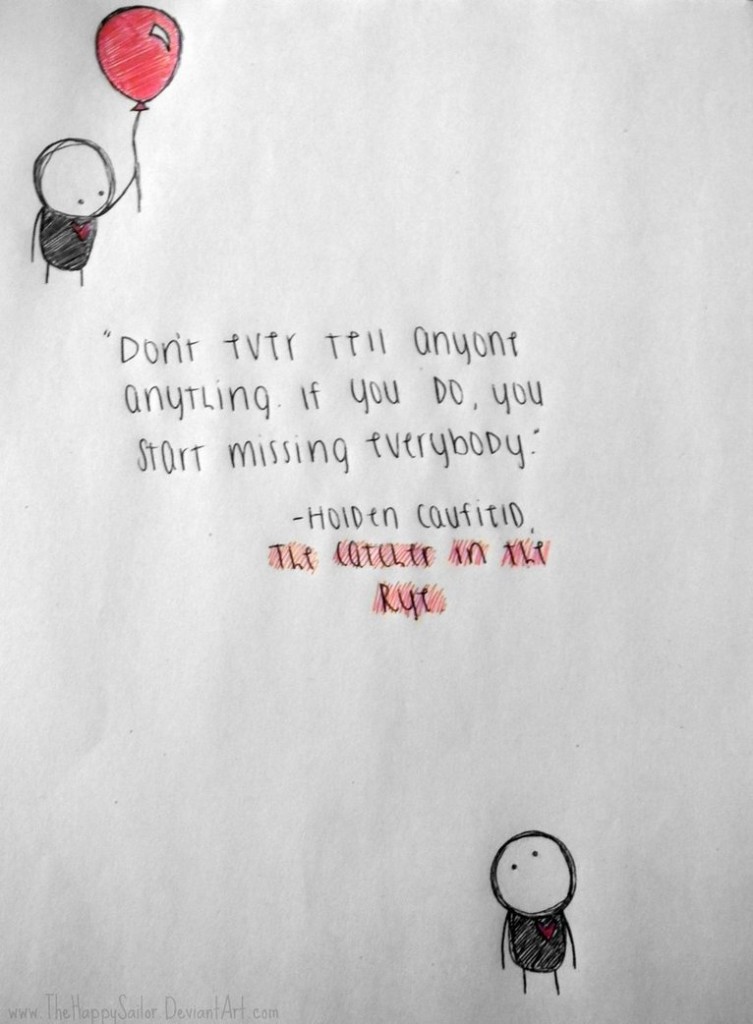 "Don't ever tell anyone
anything. If you do, you
start missing everybody."
-Holden Caufield,
The Catcher in the
Rye.
www.TheHappySailor.DeviantArt.com